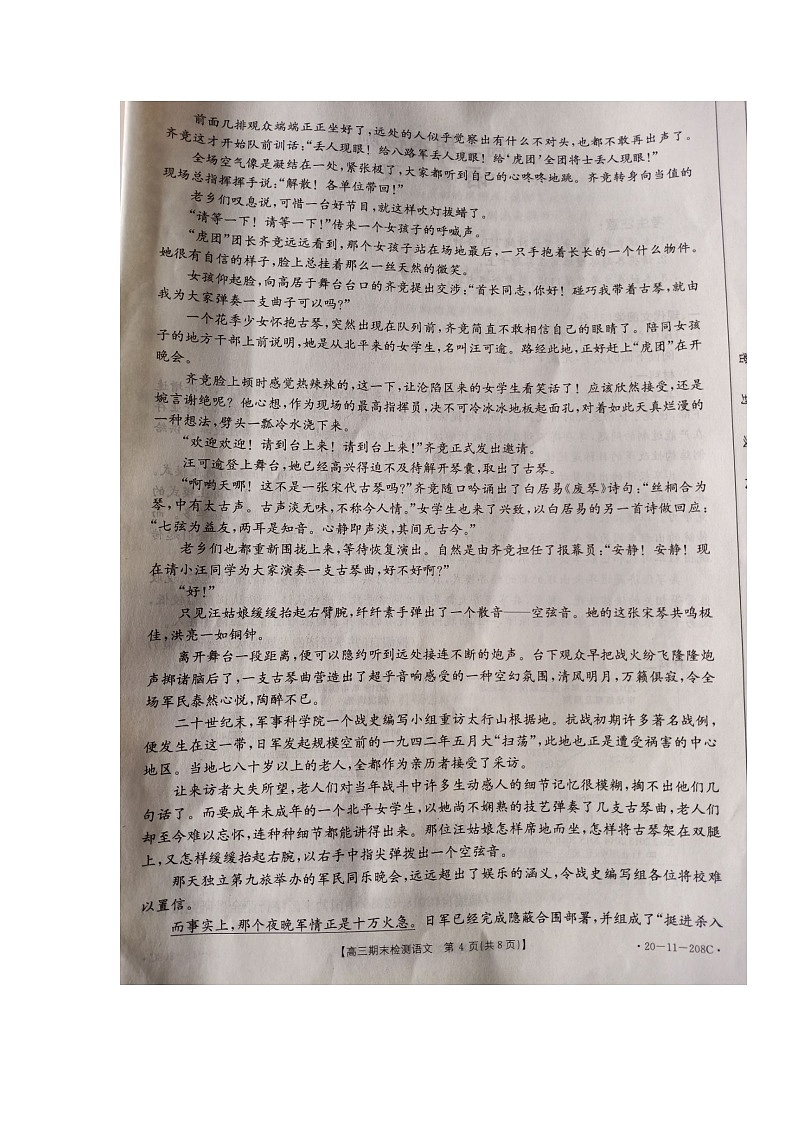 前面几排观众端端正正坐好了，远处的人似乎觉察出有什么不对头，也都不敢再出声了。
齐竞这才开始队前训话：“丢人现眼！给八路军丢人现眼！给‘虎团’全团将士丢人现眼！”
全场空气像是凝结在一处，紧张极了，大家都听到自己的心咚咚地跳。齐竞转身向当值的
现场总指挥挥手说：“解散！各单位带回！”
老乡们叹息说，可惜一台好节目，就这样吹灯拔蜡了。
“请等一下！请等一下！”传来一个女孩子的呼喊声。
“虎团”团长齐竞远远看到，那个女孩子站在场地最后，一只手抱着长长的一个什么物件。
她很有自信的样子，脸上总挂着那么一丝天然的微笑。
女孩仰起脸，向高居于舞台台口的齐竞提出交涉：“首长同志，你好！碰巧我带着古琴，就由
我为大家弹奏一支曲子可以吗？”
一个花季少女怀抱古琴，突然出现在队列前，齐竞简直不敢相信自己的眼睛了。陪同女孩
子的地方干部上前说明，她是从北平来的女学生，名叫汪可逾。路经此地，正好赶上“虎团”在开
晚会。
齐竞脸上顿时感觉热辣辣的，这一下，让沦陷区来的女学生看笑话了！应该欣然接受，还是
婉言谢绝呢？他心想，作为现场的最高指挥员，决不可冷冰冰地板起面孔，对着如此天真烂漫的
一种想法，劈头一瓢冷水浇下来。
“欢迎欢迎！请到台上来！请到台上来！”齐竞正式发出邀请。
汪可逾登上舞台，她已经高兴得迫不及待解开琴囊，取出了古琴。
“啊哟天哪！这不是一张宋代古琴吗？”齐竞随口吟诵出了白居易《废琴》诗句：“丝桐合为
琴，中有太古声。古声淡无味，不称今人情。”女学生也来了兴致，以白居易的另一首诗做回应：
“七弦为益友，两耳是知音。心静即声淡，其间无古今。”
老乡们也都重新围拢上来，等待恢复演出。自然是由齐竞担任了报幕员：“安静！安静！现
在请小汪同学为大家演奏一支古琴曲，好不好啊？”
“好！”
只见汪姑娘缓缓抬起右臂腕，纤纤素手弹出了一个散音——空弦音。她的这张宋琴共鸣极
佳，洪亮一如铜钟。
离开舞台一段距离，便可以隐约听到远处接连不断的炮声。台下观众早把战火纷飞隆隆炮
声掷诸脑后了，一支古琴曲营造出了超乎音响感受的一种空幻氛围，清风明月，万籁俱寂，令全
场军民泰然心悦，陶醉不已。
二十世纪末，军事科学院一个战史编写小组重访太行山根据地。抗战初期许多著名战例，
便发生在这一带，日军发起规模空前的一九四二年五月大“扫荡”，此地也正是遭受祸害的中心
地区。当地七八十岁以上的老人，全都作为亲历者接受了采访。
让来访者大失所望，老人们对当年战斗中许多生动感人的细节记忆很模糊，掏不出他们几
句话了。而要成年未成年的一个北平女学生，以她尚不娴熟的技艺弹奏了几支古琴曲，老人们
却至今难以忘怀，连种种细节都能讲得出来。那位汪姑娘怎样席地而坐，怎样将古琴架在双腿
上，又怎样缓缓抬起右腕，以右手中指尖弹拨出一个空弦音。
那天独立第九旅举办的军民同乐晚会，远远超出了娱乐的涵义，令战史编写组各位将校难
以置信。
而事实上，那个夜晚军情正是十万火急。日军已经完成隐蔽合围部署，并组成了“挺进杀入
【高三期末检测语文 第 4 页（共 8 页）】
·20－11－208C·